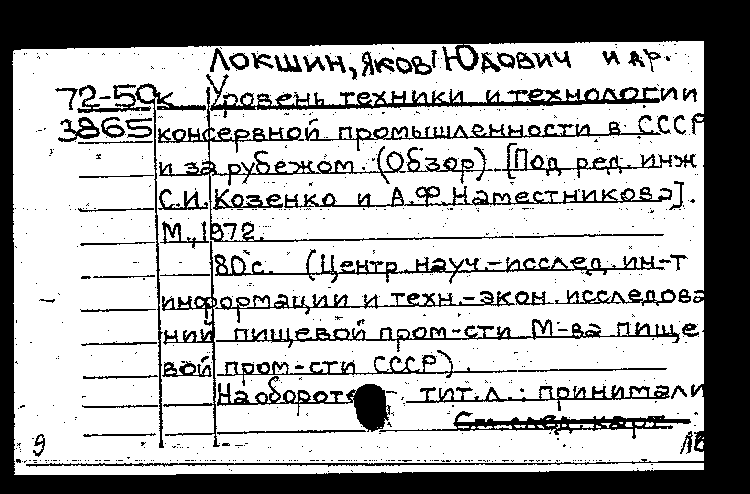 Локшин, Яков Юдович и др.
72-50к Уровень техники и технологии
3865 консервной промышленности в СССР
и за рубежом. (Обзор) [Под ред. инж
С.И. Козенко и А.Ф. Наместникова].
М., 1972.
80 с. (Центр. науч.-исслед. ин-т
информации и техн.-экон. исследова
ний пищевой пром-сти М-ва пище
вой пром-сти СССР).
На обороте тит. л.: принимали
См. след. карт.
9